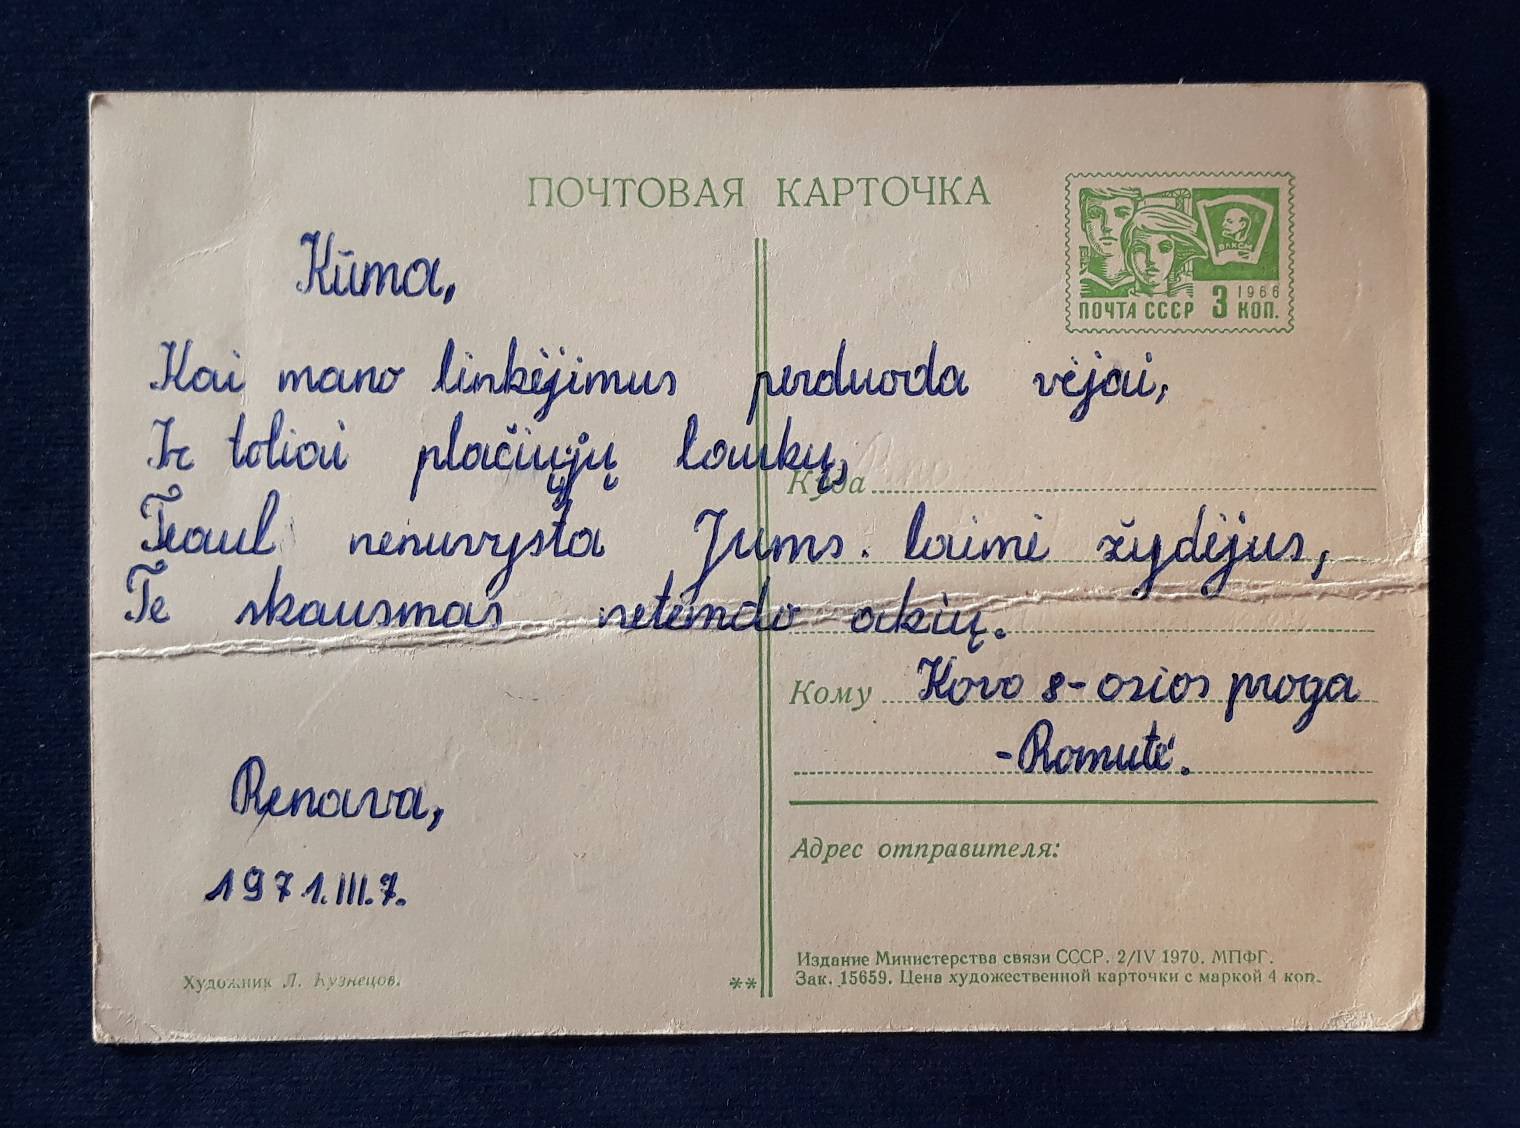 ПОЧТОВАЯ КАРТОЧКА
ВЛКСМ
1966
ПОЧТА СССР 3 КОП.
Kūma,
Kai mano linkėjimus perduoda vėjai,
Ir toliai plačiųjų laukų,
Куда
Tegul nenuvysta Jums. laimė žydėjus,
Te skausmas netemdo akių.
Кому
Kovo 8-osios proga
-Romutė.
Renava,
1971.III.7.
Адрес отправителя:
Издание Министерства связи СССР. 2/IV 1970. МПФГ.
Зак. 15659. Цена художественной карточки с маркой 4 коп.
Художник Л. Кузнецов.
**